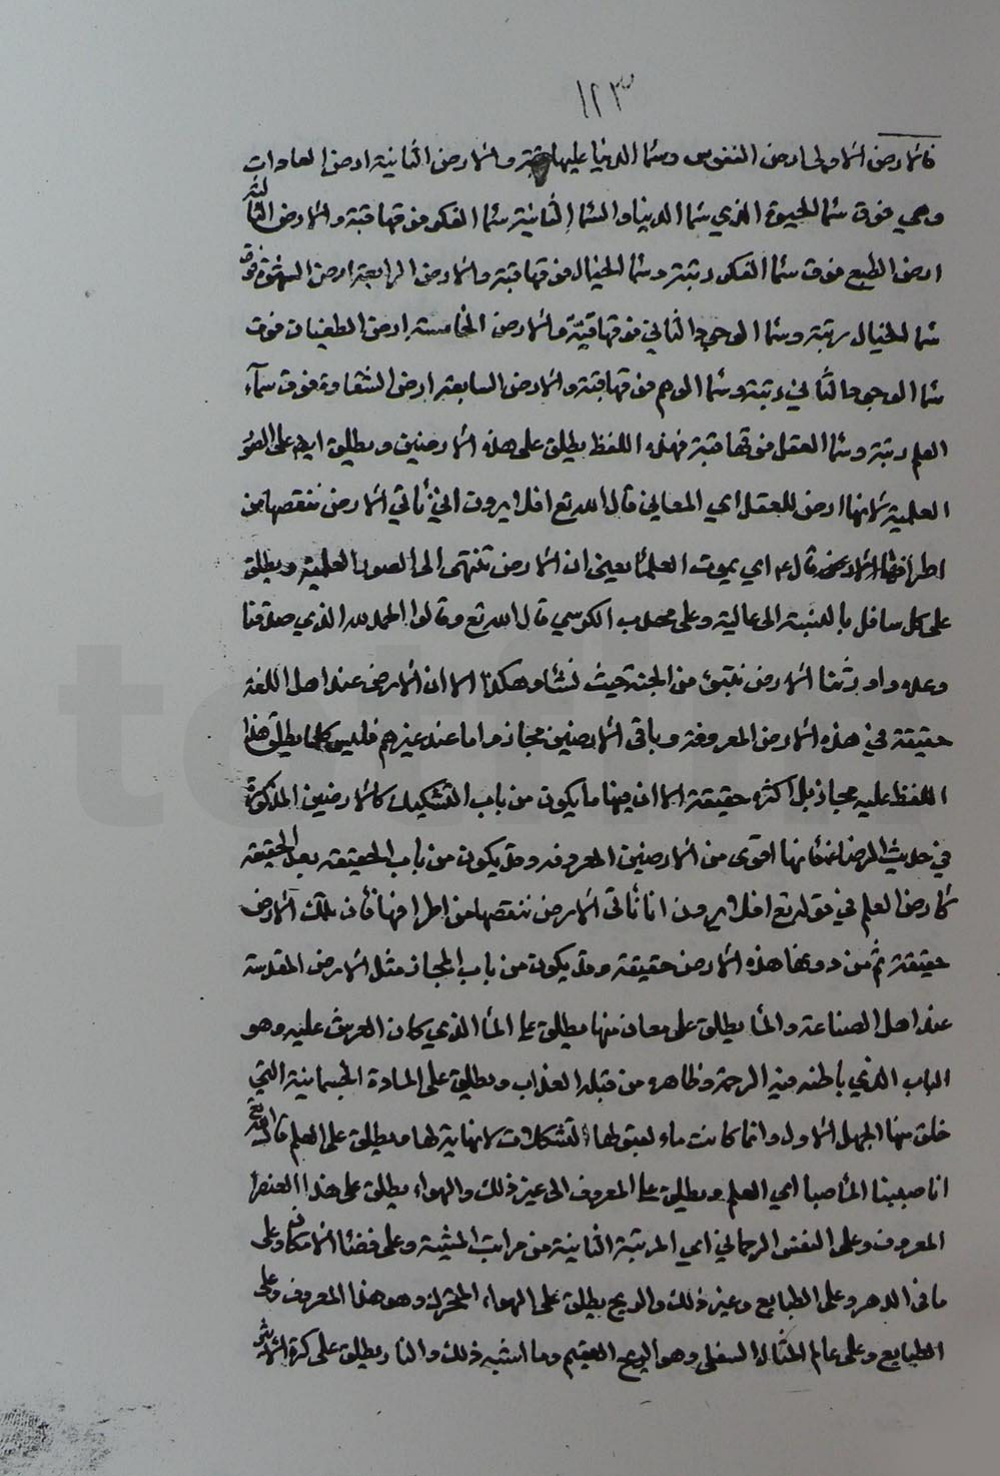 ١٢٣
فالارض الاولى ارض النفوس وسماء الدنيا عليها قبة والارض الثانية ارض العادات
وهي فوق سماء الحيوة الذي سماء الدنيا والسماء الثانية سماء الفكر فوقها قبة والارض الثالثة
ارض الطبع فوق سماء الفكر رتبة وسماء الخيال فوقها قبة والارض الرابعة ارض الشهوة فوق
سماء الخيال رتبة وسماء الوجود الثاني فوقها قبة والارض الخامسة ارض الطغيان فوق
سماء الوجود الثاني رتبة وسماء الوهم فوقها قبة والارض السابعة ارض الشقاوة فوق سمآء
العلم رتبة وسماء العقل فوقها قبة فهذه اللفظ يطلق على هذه الارضين ويطلق ايض على الصور
العلمية لانها ارض للعقل اي المعاني قال الله تع افلا يرون انا نأتي الارض ننقصها من
اطرافها قال ع اي بموت العلماء يعني ان الارض تنتهى الى الصور العلمية ويطلق
على كل سافل بالنسبة الى عالية وعلى محدب الكرسي قال الله تع وقالوا الحمد لله الذي صدقنا
وعده واورثنا الارض نتبوئ من الجنة حيث نشاء وهكذا الا ان الارض عند اهل اللغة
حقيقة في هذه الارض المعروفة وباقى الارضين مجاز واما عند غيرهم فليس كلما يطلق هذا
اللفظ عليه مجاز بل اكثره حقيقة الا ان فيها ما يكون من باب التشكيك كالارضين المذكورة
في حديث الرضا ع فانها اقوى من الارضين المعروفة وقد يكون من باب الحقيقة بعد الحقيقة
كارض العلم في قوله تع افلا يرون انا نأتى الارض ننقصها من اطرافها فان تلك الارض
حقيقة ثم من دونها هذه الارض حقيقة وقد يكون من باب المجاز مثل الارض المقدسة
عند اهل الصناعة والماء يطلق على معان منها يطلق على الماء الذي كان العرش عليه وهو
الباب الذي باطنه فيه الرحمة وظاهره من قبله العذاب ويطلق على المادة الجسمانية التي
خلق منها الجهل الاول وانما كانت ماء لقبولها التشكلات لا نهاية لها ويطلق على العلم قال الله تع
انا صببنا الماء صبا اي العلم ويطلق على المعروف الى غير ذلك والهواء يطلق على هذا العنصر
المعروف وعلى النفس الرحماني اي المرتبة الثانية من مراتب المشية وعلى فضاء الامكان وعلى
ما فى الدهر وعلى الطبايع وغير ذلك والريح يطلق على الهواء المتحرك وهو هذا المعروف وعلى
الطبايع وعلى عالم المثال السفلى وهو الريح العقيم وما اشبه ذلك والنار يطلق على كرة الاثير